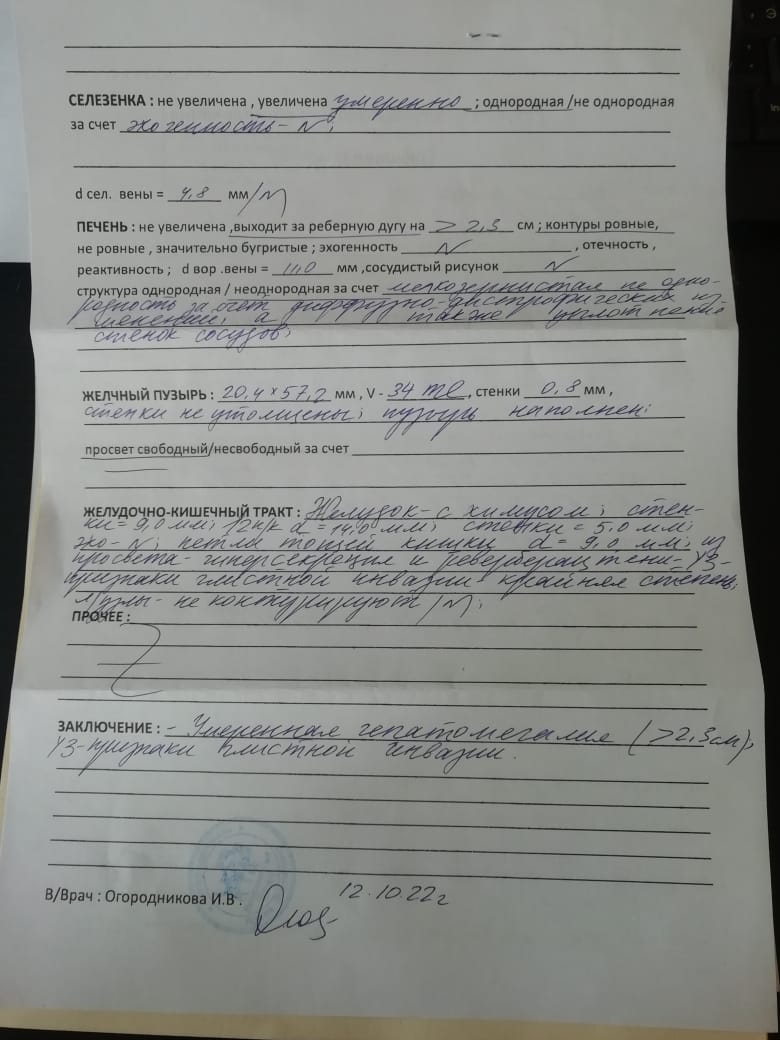 СЕЛЕЗЕНКА : не увеличена , увеличена умеренно ; однородная /не однородная
за счет эхогенность - N;
d сел. вены = 4,8 мм/N
ПЕЧЕНЬ : не увеличена ,выходит за реберную дугу на > 2,3 см ; контуры ровные,
не ровные , значительно бугристые ; эхогенность N , отечность ,
реактивность ; d вор .вены = 11,0 мм ,сосудистый рисунок N
структура однородная / неоднородная за счет мелкозернистая не одно-
родность за счет диффузно-дистрофических из-
менений; а также уплотнение
стенок сосудов;
ЖЕЛЧНЫЙ ПУЗЫРЬ : 20,4 x 57,2 мм , V - 34 ml , стенки 0,8 мм ,
стенки не утолщены; пузырь наполнен;
просвет свободный/несвободный за счет
ЖЕЛУДОЧНО-КИШЕЧНЫЙ ТРАКТ : Желудок - с химусом; стен-
ки = 9,0 мм; 12п/к d = 14,0 мм; стенки = 5,0 мм;
эхо - N; петли тощей кишки d = 9,0 мм; из
просвета - гиперсекреция и реверберац тени - УЗ-
признаки глистной инвазии крайняя степень;
л/узлы - не контурируют /N;
ПРОЧЕЕ :
ЗАКЛЮЧЕНИЕ : - Умеренная гепатомегалия (>2,3см);
УЗ-признаки глистной инвазии.
В/Врач : Огородникова И.В .
12.10.22г